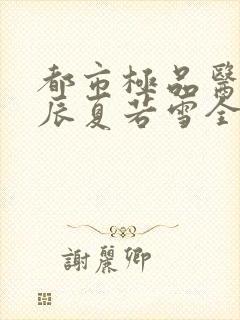 都市極品醫
辰夏若雪全
謝麗卿